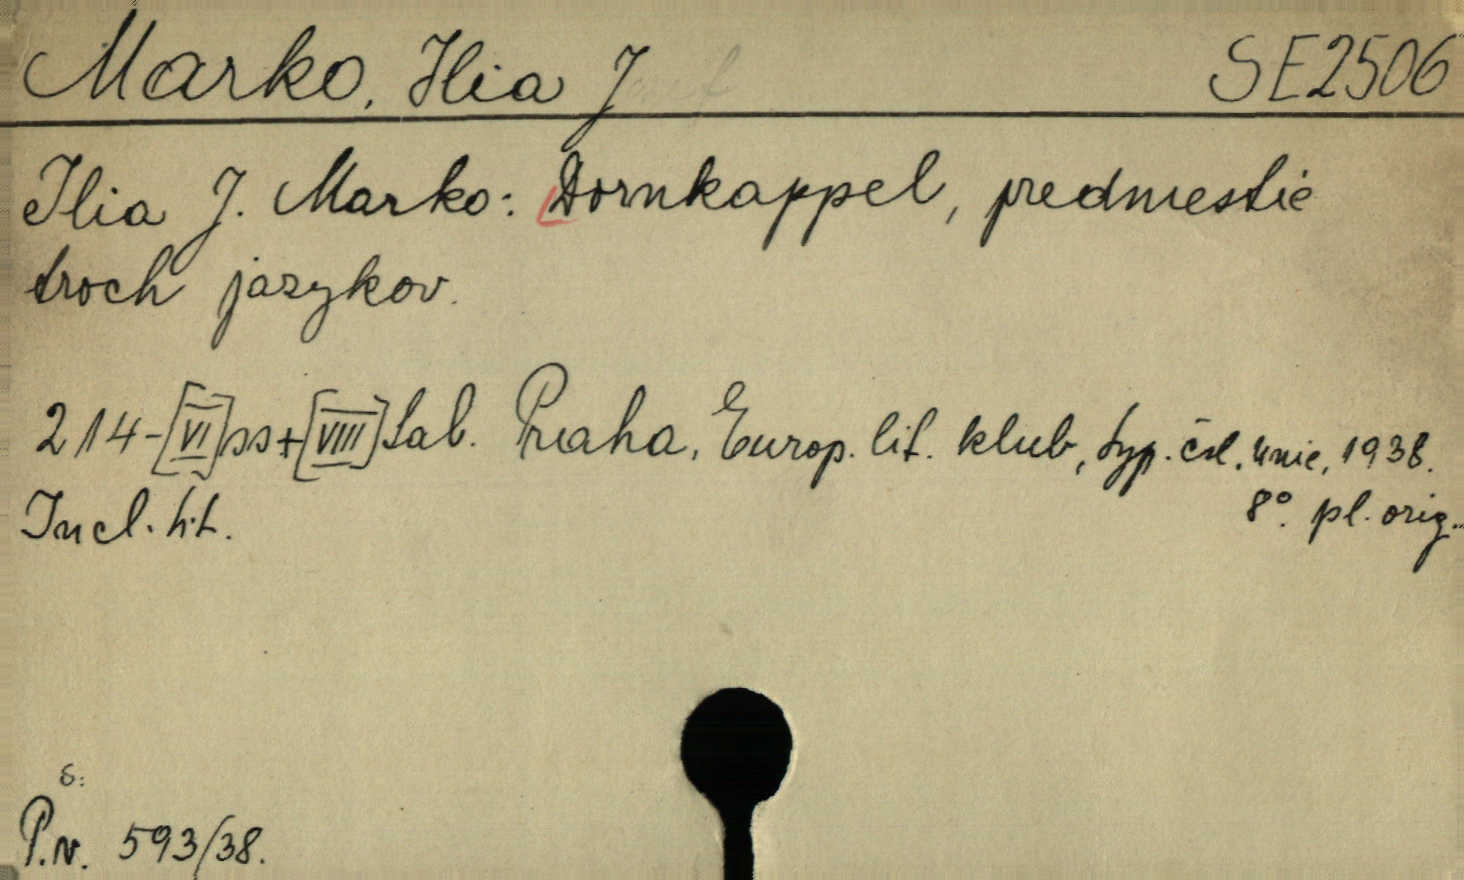 Marko, Ilia J SE2506
Ilia J. Marko: Dornkappel, predmestie
troch jazykov.
214-[VI]ss+[VIII]tab. Praha, Europ. lit. klub, typ. čsl. unie, 1938.
Incl. tit. 8°. pl. orig..
δ:
P.v. 593/38.